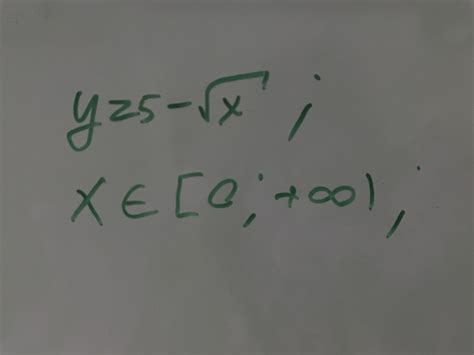 y=5-√x ;
x∈[0;+∞) ;